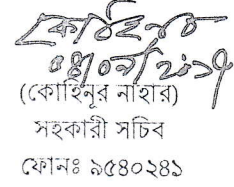 (কোহিনূর নাহার)
সহকারী সচিব
ফোনঃ ৯৫৪০২৪১